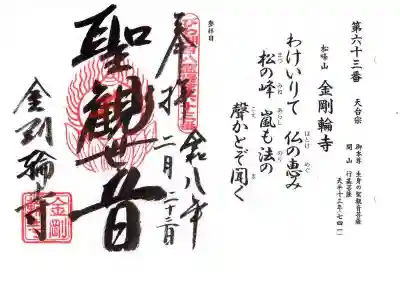 第六十三番 天台宗
御本尊 生身の聖観音菩薩
開山 行基菩薩
天平十三年(七四一)
松峰山 金剛輪寺
わけいりて 仏の恵み
松の峰 嵐も法の
聲かとぞ聞く
参拝日
令和八年
奉拝 二月二十三日
聖観世音
金剛輪寺